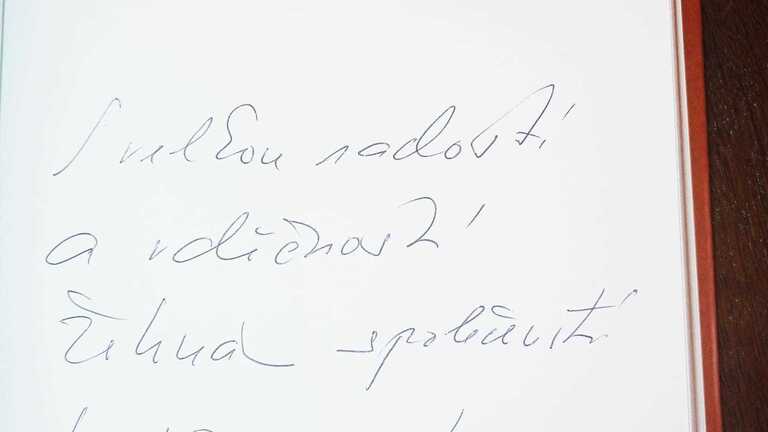 S velkou radostí
a vděčností
žehná společenství